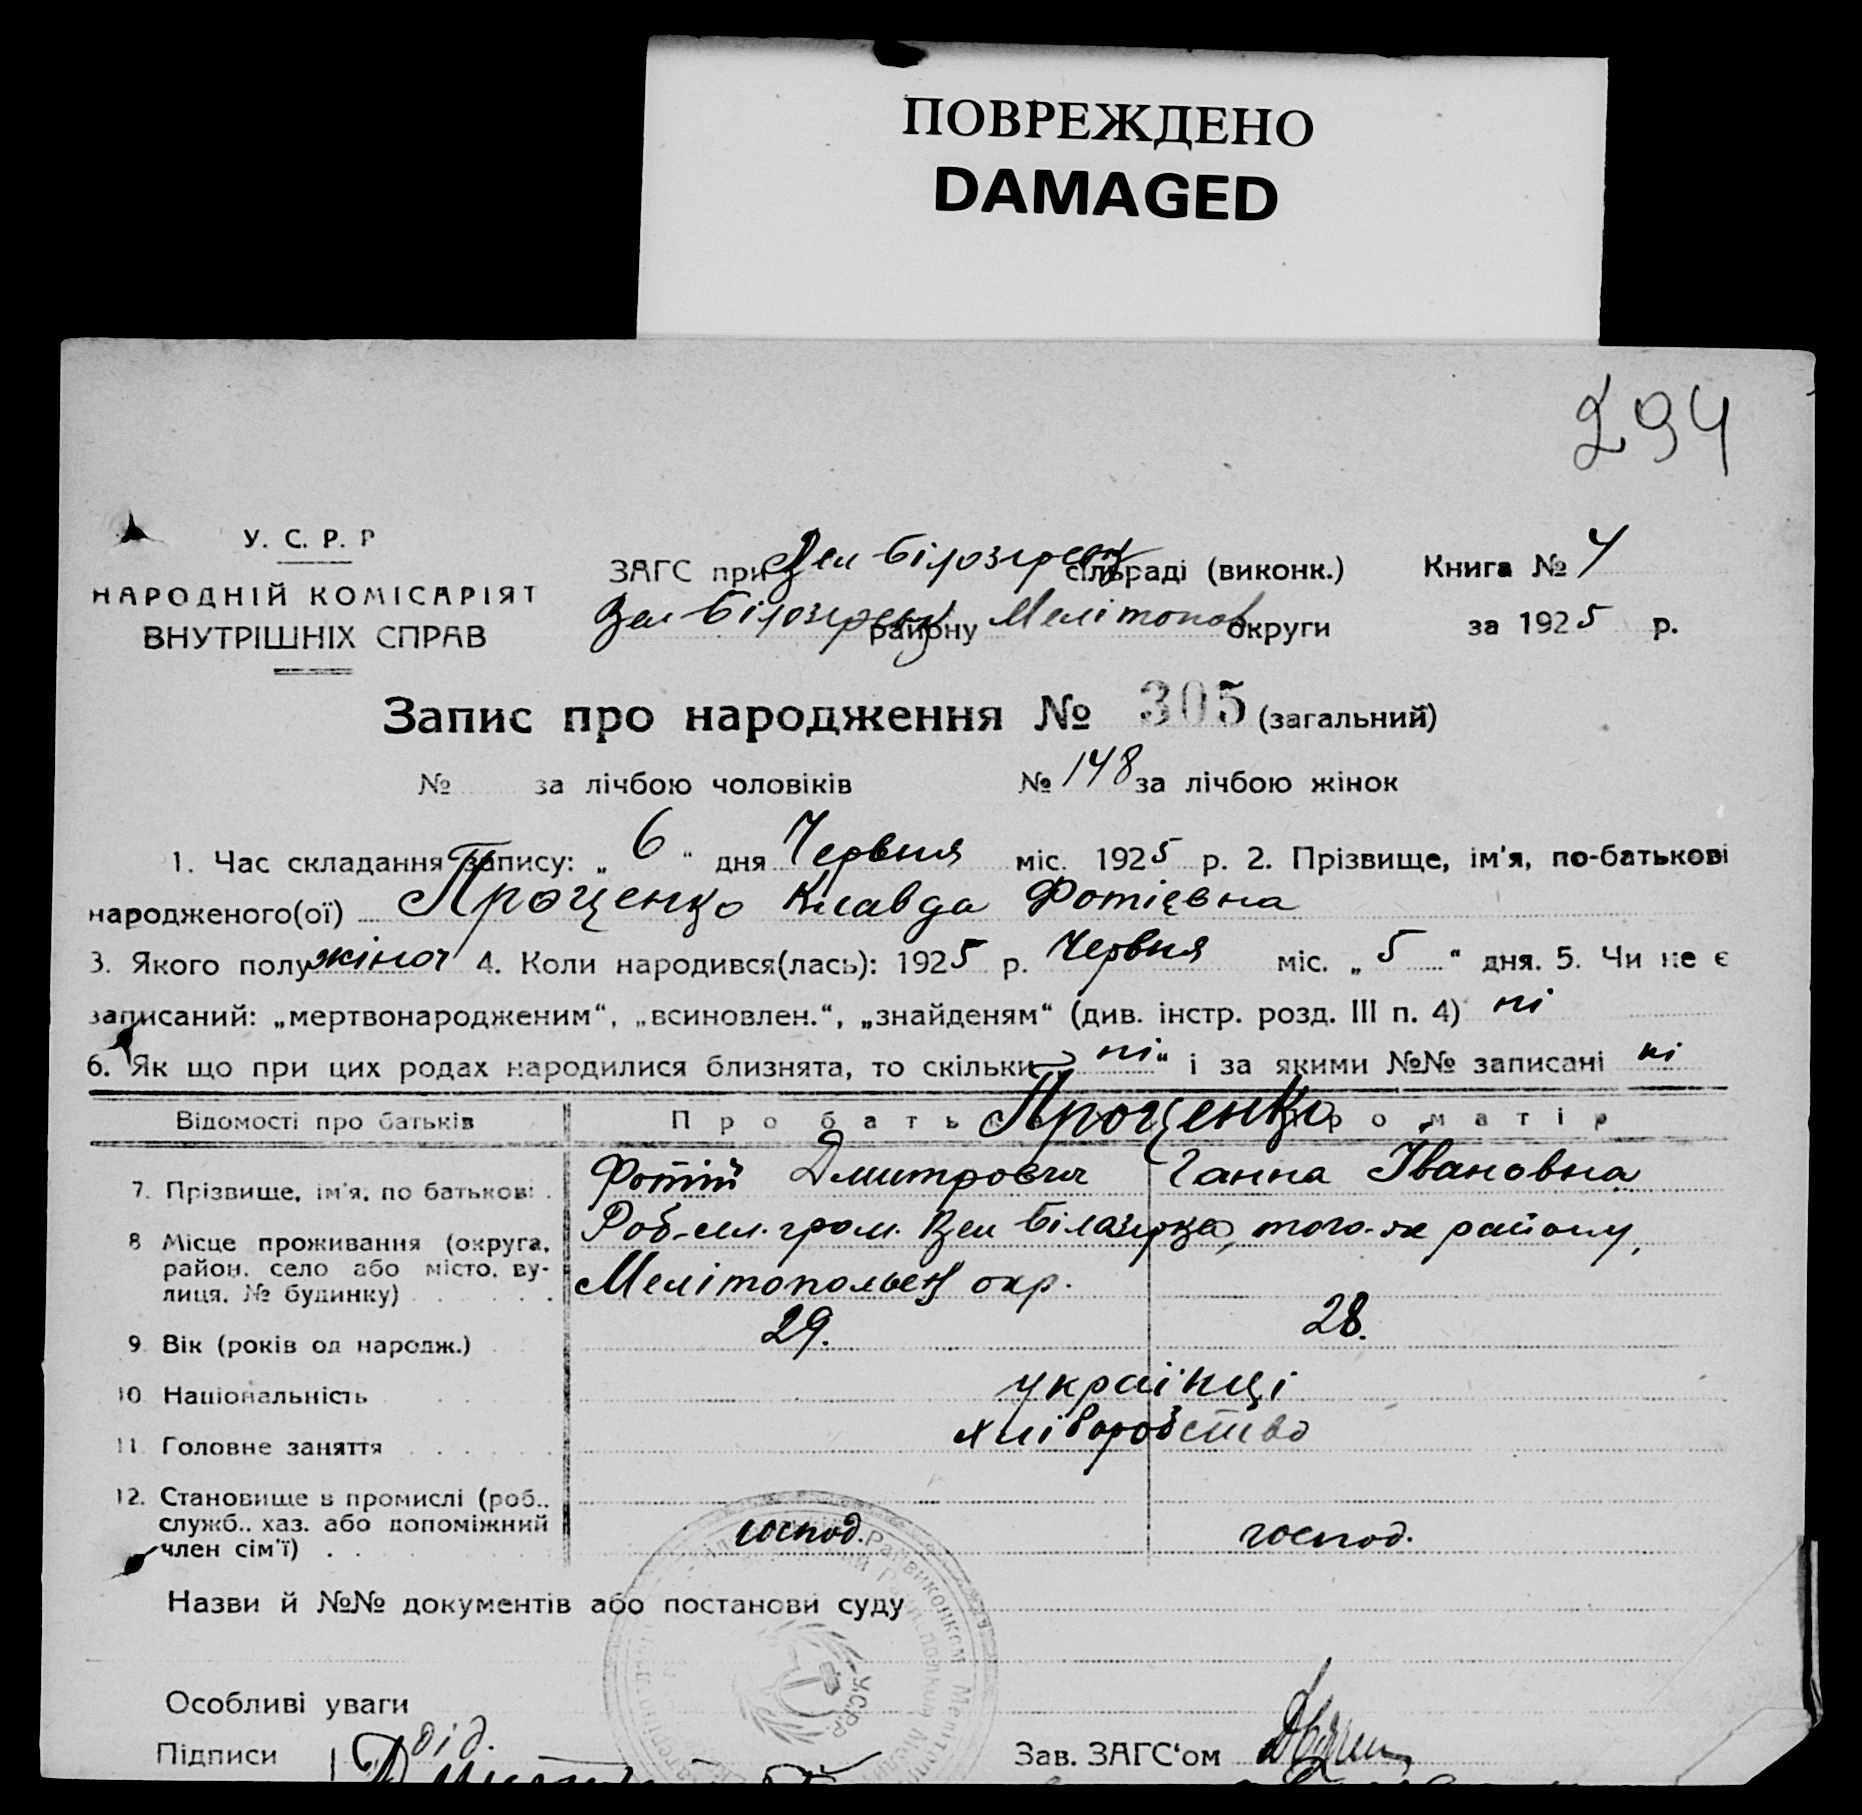 ПОВРЕЖДЕНО
DAMAGED
294
У. С. Р. Р
НАРОДНІЙ КОМІСАРІЯТ
ВНУТРІШНІХ СПРАВ
ЗАГС при Вел Білозерськ сільраді (виконк.) Книга № 4
Вел Білозерськ району Мелітопов округи за 1925 р.
Запис про народження № 305 (загальний)
№ за лічбою чоловіків № 148 за лічбою жінок
1. Час складання запису: „ 6 " дня Червня міс. 1925 р. 2. Прізвище, ім'я, по-батькові
народженого(ої) Проценко Клавда Фотієвна
3. Якого полу жіноч 4. Коли народився(лась): 1925 р. Червня міс. „ 5 " дня. 5. Чи не є
записаний: „мертвонародженим", „всиновлен.", „знайденям" (див. інстр. розд. III п. 4) ні
6. Як що при цих родах народилися близнята, то скільки ні" і за якими №№ записані ні
Відомості про батьків Про бать Проценко ро матір
7. Прізвище, ім'я, по батькові . Фотій Дмитрович Ганна Івановна
8 Місце проживання (округа, район, село або місто, вулиця, № будинку) Роб-сел. гром. Вел Білазірка, того-же району,
Мелітопольськ окр.
9 Вік (років од народж.) 29. 28.
10 Національність українці
11 Головне заняття хліборобство
12. Становище в промислі (роб.. служб.. хаз. або допоміжний член сім'ї) . . господ. господ.
Назви й №№ документів або постанови суду
Особливі уваги
У.С.Р.Р
Підписи Зав. ЗАГС'ом